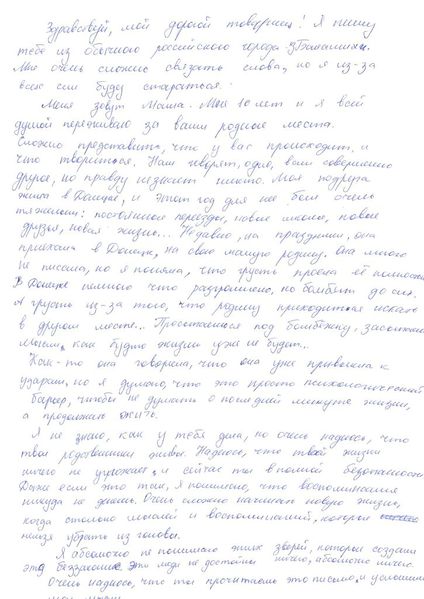 Здравствуй, мой дорогой товарищ! Я пишу
тебе из обычного российского города Балашихи.
Мне очень сложно связать слова, но я из-за
всех сил буду стараться.
Меня зовут Маша. Мне 10 лет и я всей
душой переживаю за ваши родные места.
Сложно представить, что у вас происходит и
что творится. Нам говорят одно, вам совершенно
другое, но правду не знает никто. Моя подруга
жила в Донецке, и этот год для неё был очень
тяжёлым: постоянные переезды, новые школы, новые
друзья, новая жизнь... Недавно, на праздники, она
приехала в Донецк, на свою малую родину. Она много
не писала, но я поняла, что грусть её
В Донецке немного что разгромлено, но бомбят до сих.
А грусть из-за того, что родину приходится искать
в другом месте... Просыпаешься под бомбёжку, засыпаешь
как будто жизни уже не будет...
Как-то она говорила, что она уже привыкла к
ударам, но я думаю, что это просто психологический
барьер, чтобы не думать о последней минуте жизни,
а продолжать жить.
Я не знаю, как у тебя дела, но очень надеюсь, что
твои родственники живы. Надеюсь, что твоей жизни
ничего не угрожает, и сейчас ты в полной безопасности.
Даже если это так, я понимаю, что воспоминания
никуда не денешь. Очень сложно начинать новую жизнь,
когда столько мыслей и воспоминаний, которые
нельзя убрать из головы.
Я абсолютно не понимаю этих зверей, которые создали
это безумие. Эти люди не достойны ничего, абсолютно ничего.
Очень надеюсь, что ты прочитаешь это письмо, и услышишь
мои